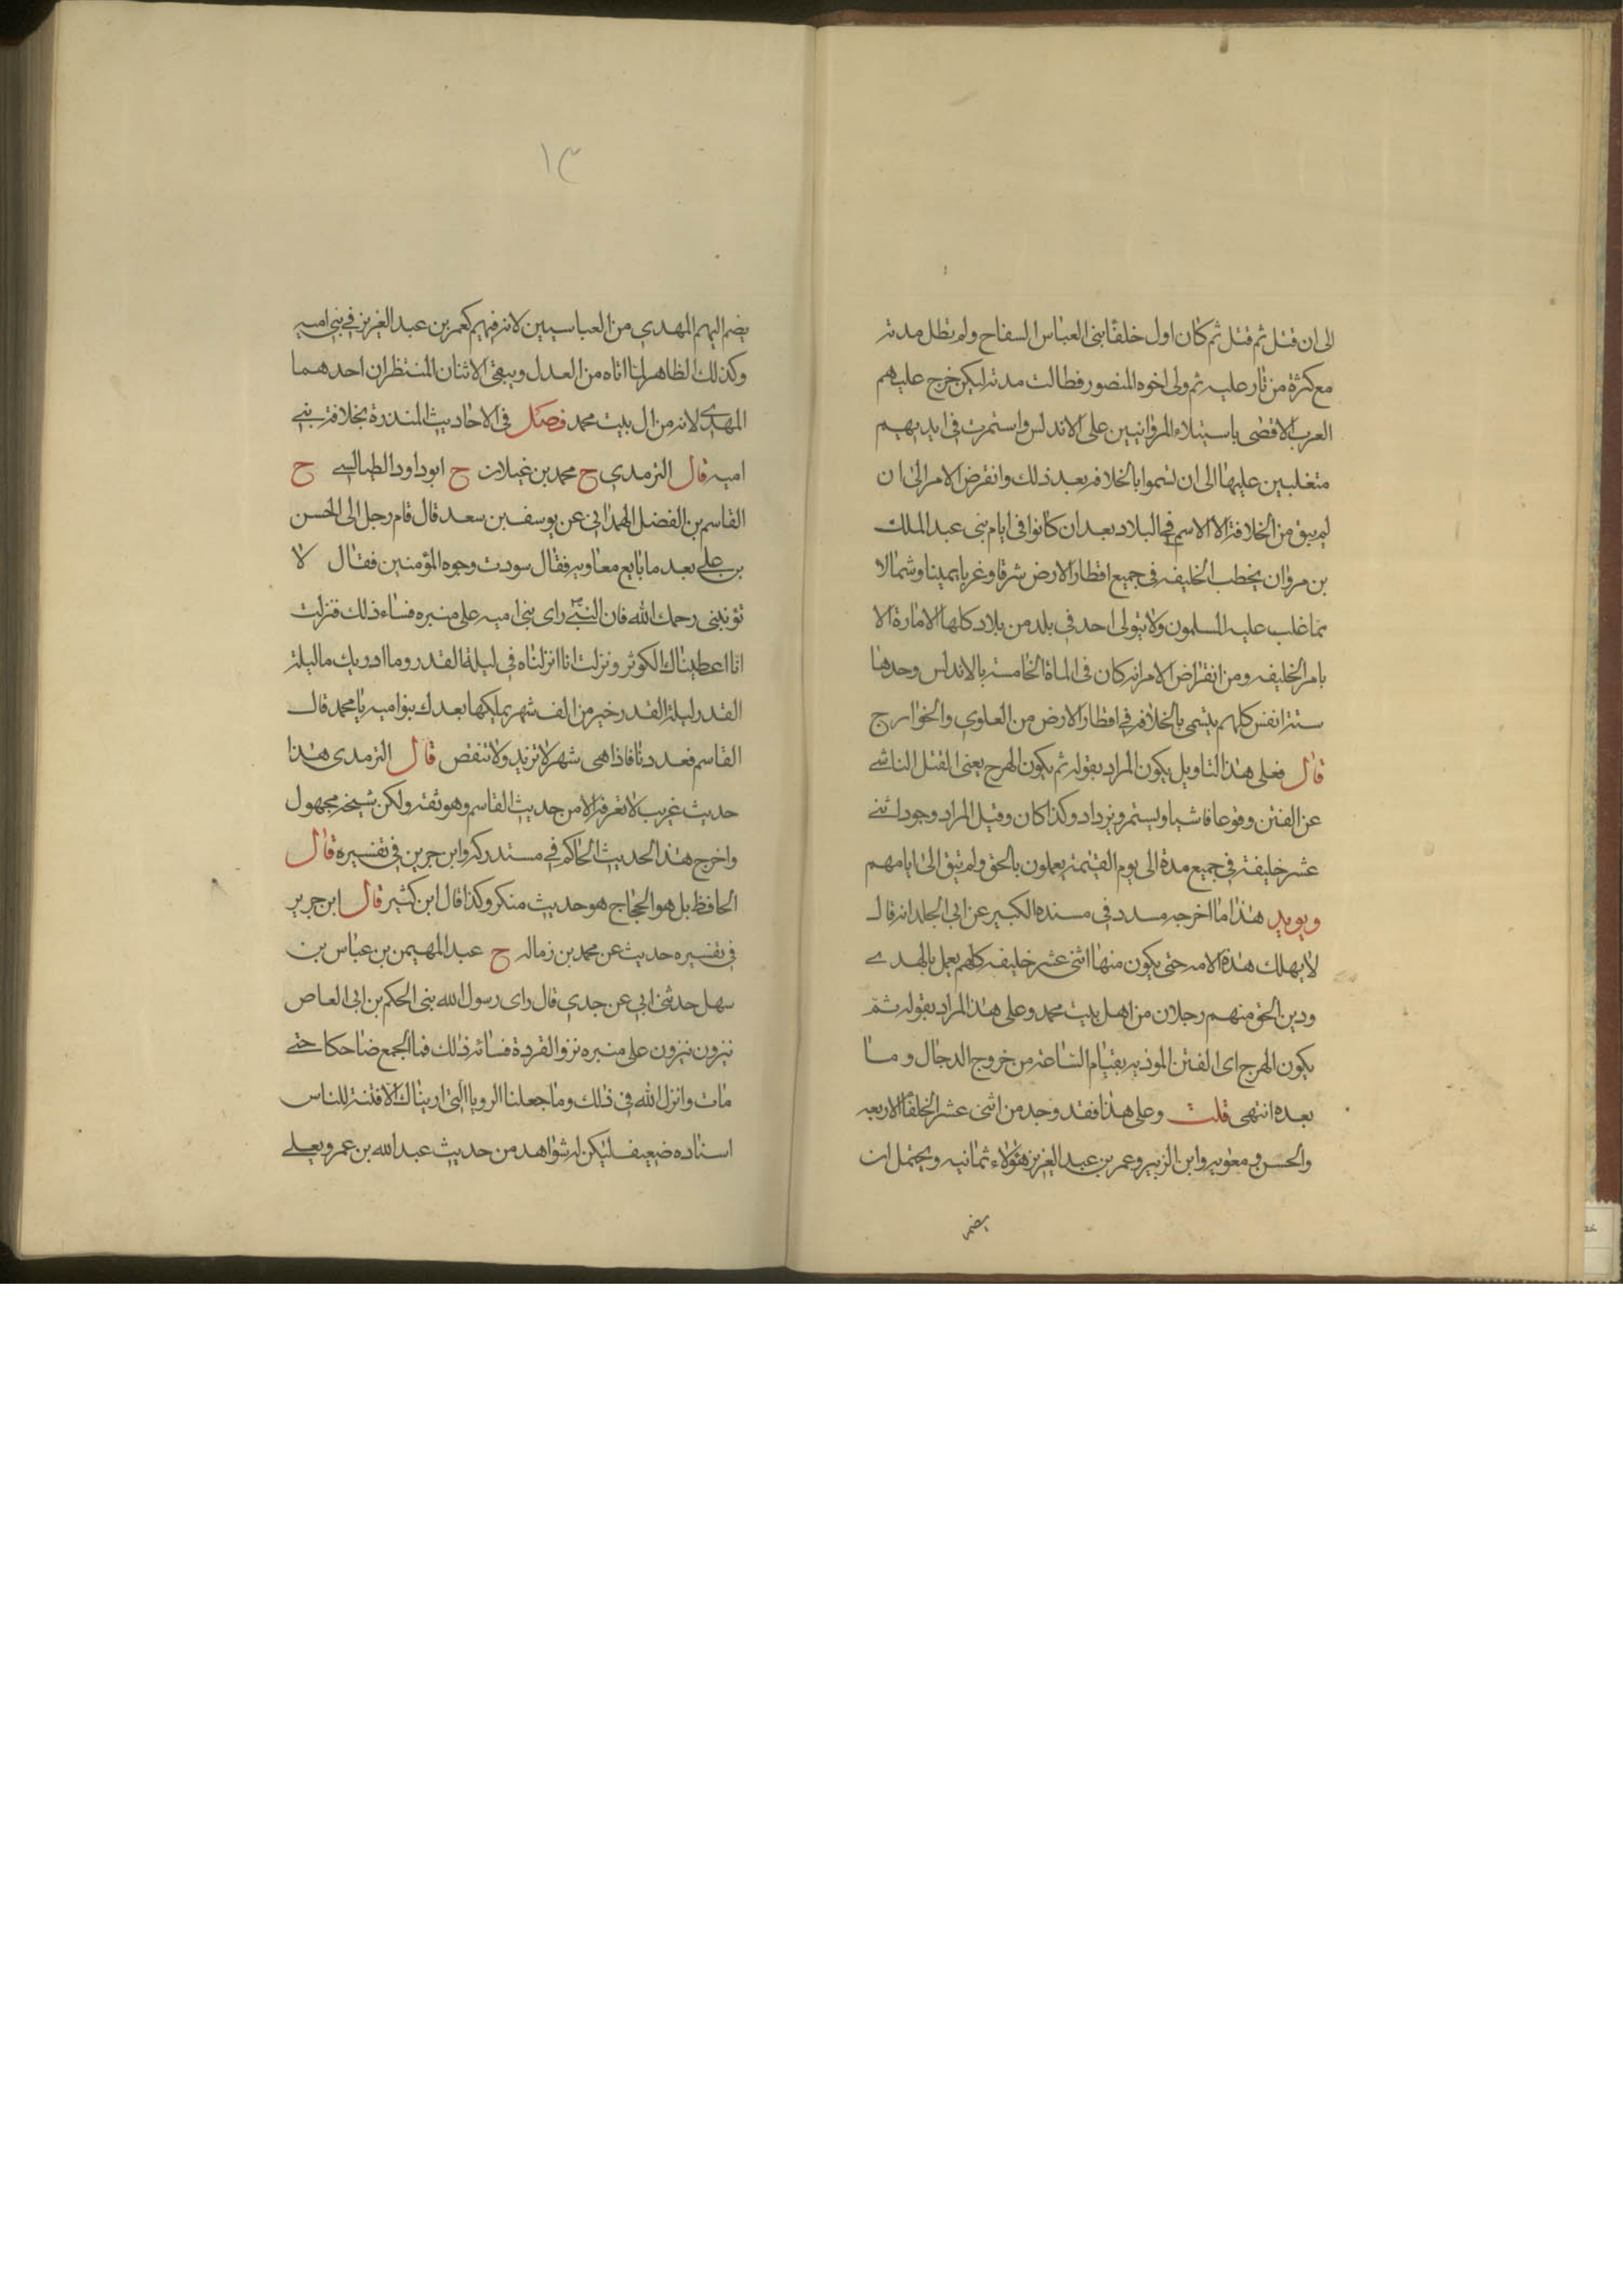 الى ان قتل ثم قتل ثم كان اول خلفا بنى العباس السفاح ولم تطل مدته
مع كثرة من ثار عليه ثم ولى اخوه المنصور فطالت مدته ليكن خرج عليهم
العرب الاقضى باستيلاء المروانيين على الاندلس واستمرت فى ايديهم
متغلبين عليها الى ان تسموا بالخلافه بعد ذلك وانقرض الامر الى ان
لم يبق من الخلافة الا الاسم فى البلاد بعد ان كانوا فى ايام بنى عبد الملك
بن مروان يخطب الخليفه فى جميع اقطار الارض شرقا وغربا يمينا وشمالا
مما غلب عليه المسلمون ولا يتولى احد فى بلد من بلاد كلها الامارة الا
بامر الخليفه ومن انقراض الامر انه كان فى الماة الخامسه بالاندلس وحدها
ستة انفس كلهم يتسمى بالخلافه فى اقطار الارض من العلوي والخوارج
قال فعلى هذا التاويل يكون المراد بقوله ثم يكون الهرج يعنى القتل الناشى
عن الفتن وقوعا فاشيا ويستمر ويزداد وكذا كان وقيل المراد وجود اثنى
عشر خليفة فى جميع مدة الى يوم القيمة يعملون بالحق ولم تبق الى ايامهم
ويويد هذا ما اخرجه مسدد فى مسنده الكبير عن ابى الجلد انه قال
لا يهلك هذه الامه حتى يكون منها اثنى عشر خليفه كلهم يعمل بالهدى
ودين الحق منهم رجلان من اهل بيت محمد وعلى هذا المراد بقوله ثم
يكون الهرج اى الفتن الموذيه بقيام الساعة من خروج الدجال وما
بعده انتهى قلت وعلى هذا فقد وجد من اثنى عشر الخلفا الاربعه
والحسن ومعويه وابن الزبير وعمر بن عبد العزيز هؤلاء ثمانيه ويحتمل ان
يضم
١٣
يضم اليهم المهدي من العباسيين لانه فيهم كعمر بن عبد العزيز فى بنى اميه
وكذلك الظاهر لما اتاه من العدل ويبقى الاثنان المنتظران احدهما
المهدى لانه من ال بيت محمد فصل فى الاحاديث المنذرة بخلافة بنى
اميه قال الترمدي ح محمد بن غيلان ح ابوداود الطيالسى ح
القاسم بن الفضل الحمدانى عن يوسف بن سعد قال قام رجل الى الحسن
بن على بعد ما بايع معاويه فقال سودت وجوه المؤمنين فقال لا
تؤنبنى رحمك الله فان النبى راى بنى اميه على منبره فساء ذلك فنزلت
انا اعطيناك الكوثر ونزلت انا انزلناه فى ليلة القدر وما ادريك ما ليلة
القدر ليلة القدر خير من الف شهر يملكها بعدك بنو اميه يا محمد قال
القاسم فعددنا فاذا هى شهر لا تزيد ولا تنقص قال الترمدى هذا
حديث غريب لا نعرفه الا من حديث القاسم وهو ثقه ولكن شيخه مجهول
واخرج هذا الحديث الحاكم فى مستدركه وابن جرين فى تفسيره قال
الحافظ بل هو الحجاج هو حديث منكر وكذا قال ابن كثير قال ابن جرير
فى تفسيره حديث عن محمد بن زماله ح عبد المهيمن بن عباس بن
سهل حدثنى ابى عن جدي قال راى رسول الله بنى الحكم بن ابى العاص
ينزون على منبره نزو القردة فسائه ذلك فما اجمع ضاحكا حتى
مات وانزل الله فى ذلك وما جعلنا الرويا التى اريناك الا فتنة للناس
اسناده ضعيف ليكن له شواهد من حديث عبد الله بن عمر ويعلى